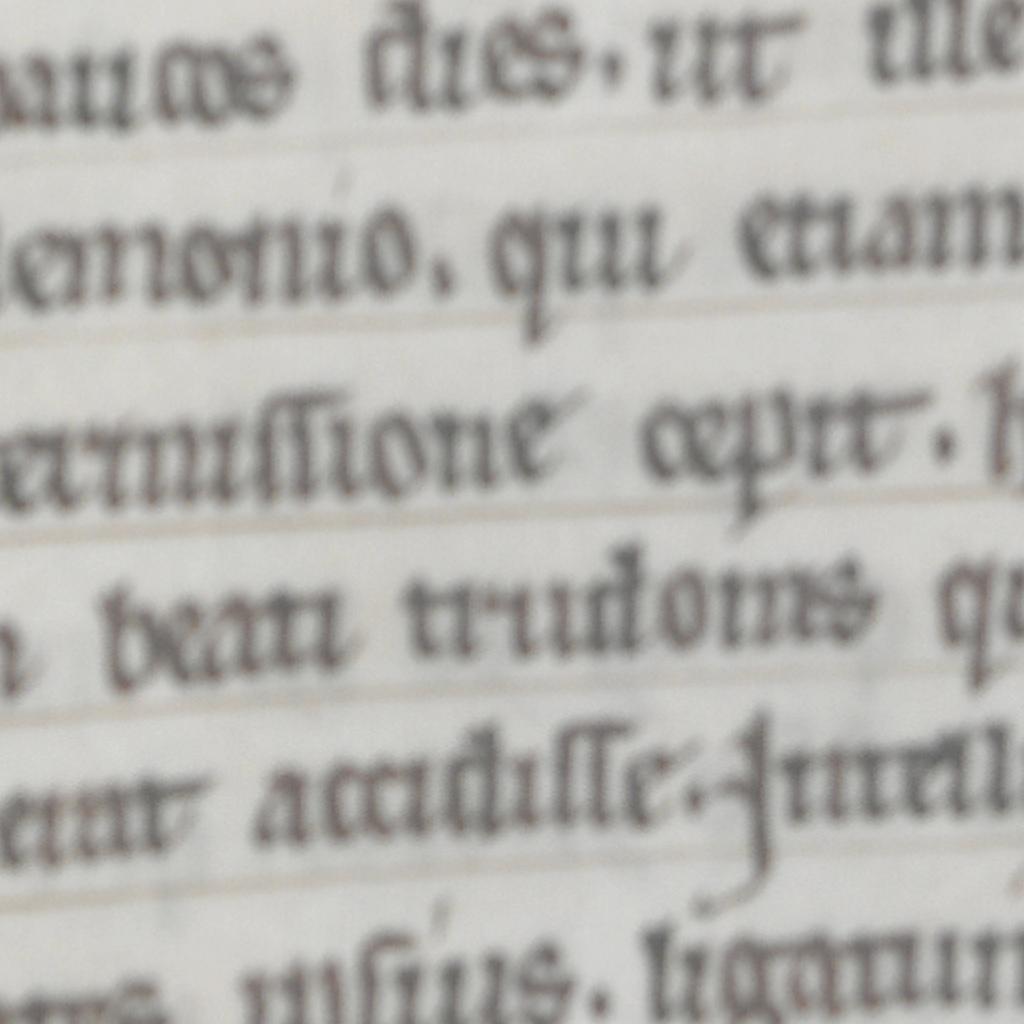 paucos dies. ut ille
demonio. qui etiam
ermissione cepit. h
n beati trudonis qu
erunt accidisse. Intell
ipsius. ligatum